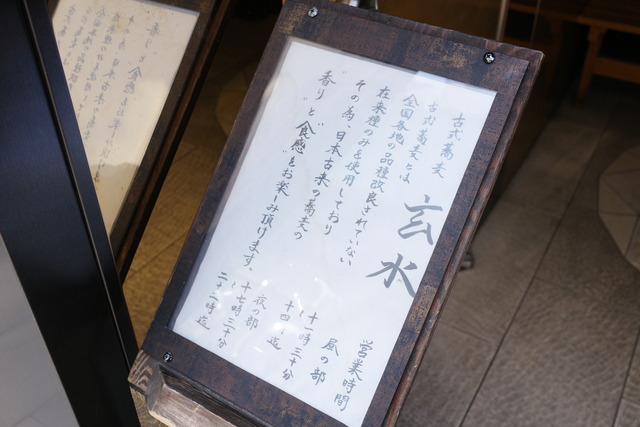 古式蕎麦
玄水
古式蕎麦とは
全国各地の品種改良されていない
在来種のみを使用しており
その為、日本古来の蕎麦の
香りと”食感”をお楽しみ頂けます。
営業時間
昼の部
十一時三十分
〜
十四時迄
夜の部
十七時三十分
〜
二十二時迄